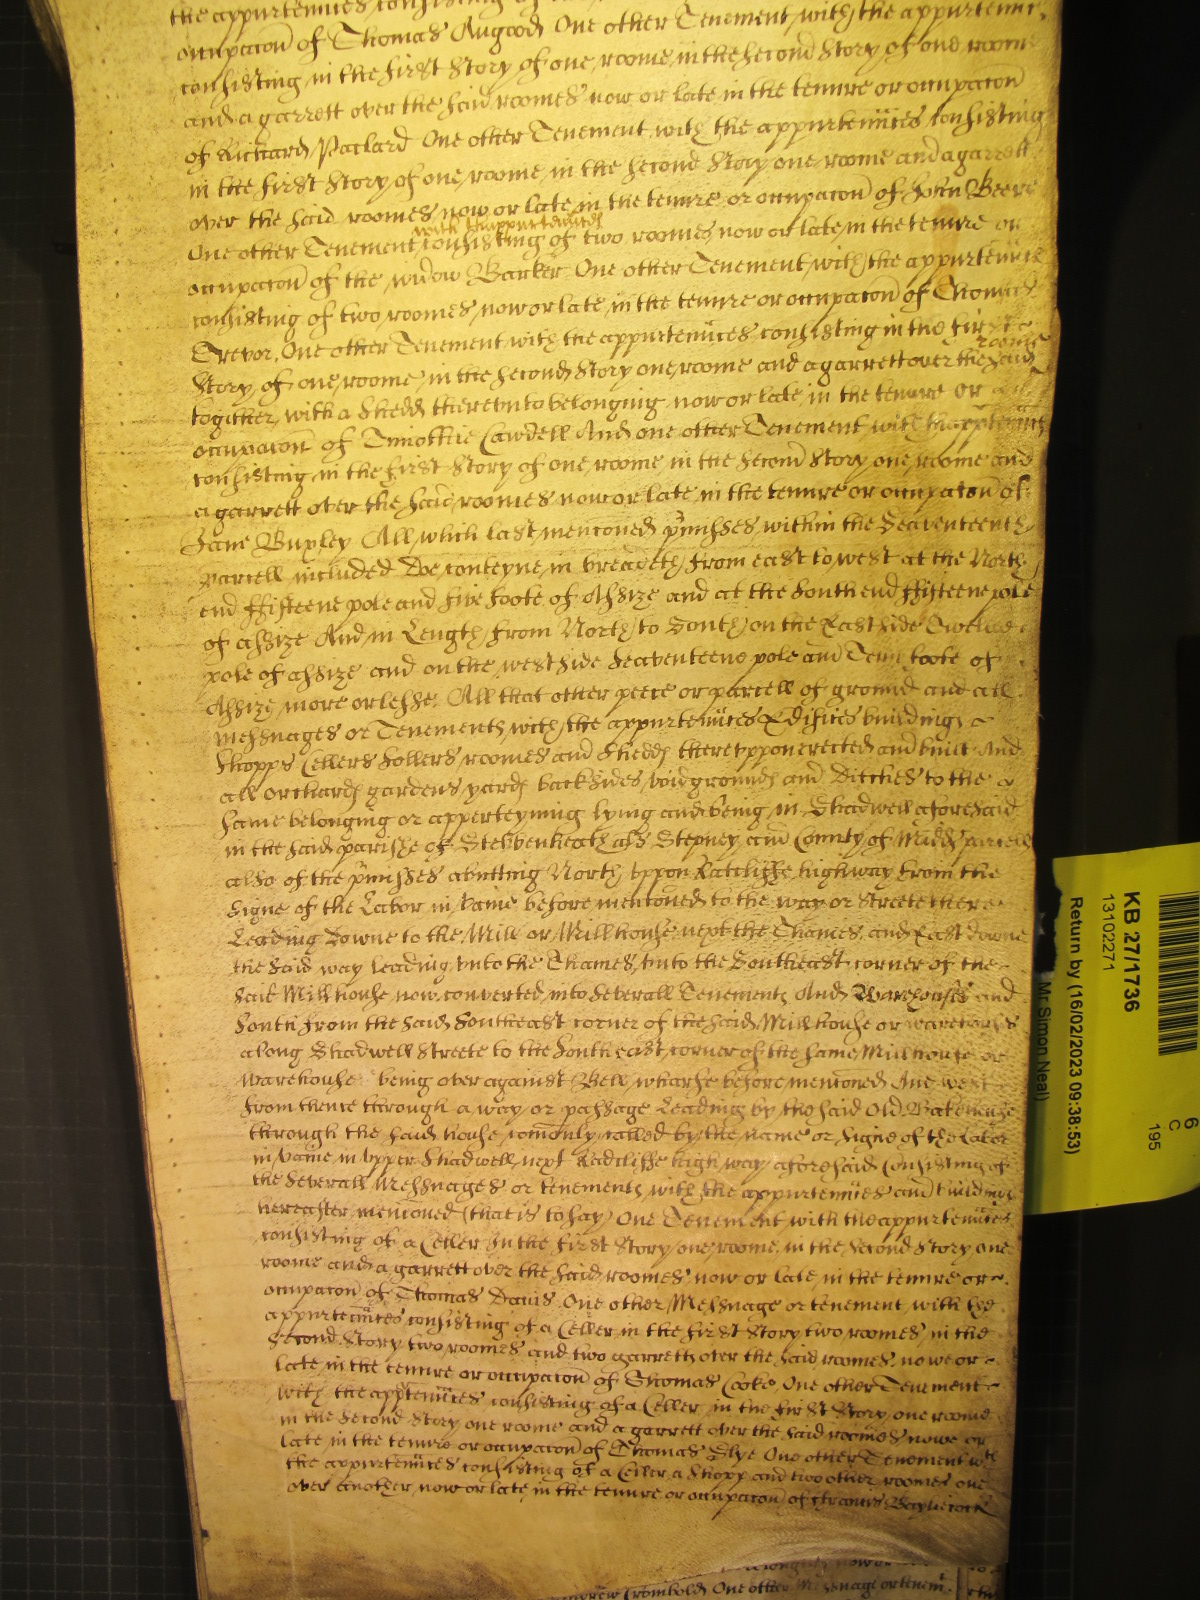 the appurtennces consisting of
occupacon of Thomas Augood One other Tenement with the appurtennc
consisting in the first Story of one roome in the second Story of one roome
and a garrett over the said roomes now or late in the tenure or occupacon
of Richard Pallard One other Tenement with the appurtennces consisting
in the first Story of one roome in the second Story one roome and a garrett
over the said roomes now or late in the tenure or occupacon of John Beere
with thappurtennces
One other Tenement consisting of two roomes now or late in the tenure or
occupacon of the widow Barker One other Tenement with the appurtennces
consisting of two roomes now or late in the tenure or occupacon of Thomas
Trevor, One other Tenement with the appurtennces consisting in the first
Story of one roome in the second Story one roome and a garrett over the said
roomes
togither with a Shedd thereunto belonging now or late in the tenure or
occupacon of Timothie Cawdell And one other Tenement with thappurtennces
consisting in the first Story of one roome in the second Story one roome and
a garrett over the said roomes now or late in the tenure or occupacon of
Jane Buxley All which last menconed pmisses within the Seaventeenth
Parcell included doe conteyne in breadeth from east to west at the North
end ffifteene pole and five foote of Assize and at the South end ffifteene pole
of assize And in Length from North to South on the East side Twelve
pole of assize and on the west side Seaventeene pole and Tenn foote of
Assize more or lesse. All that other peece or parcell of ground and all
messuages or Tenements with the appurtennces Edifices buildings
Shopps Cellers Sollers roomes and Shedds thereuppon erected and built And
all orchards gardens yards backsides void grounds and Ditches to the
same belonging or apperteyning lying and being in Shadwell aforesaid
in the said parishe of Stebbenheath als Stepney and County of Midds parcell
also of the pmisses abutting North uppon Ratcliffe highway from the
Signe of the Labor in vaine before menconed to the way or Streete there
Leading Downe to the Mill or Millhouse next the Thames and East downe
the said way leading unto the Thames unto the Southeast corner of the
said Millhouse now converted into Severall Tenements And Warehouses and
South from the said Southeast corner of the said Millhouse or warehouses
along Shadwell Streete to the South east corner of the same Millhouse or
Warehouse being over against Bell wharfe before menconed And west
from thence through a way or passage Leading by the said Old Bakehouse
through the said house comonly called by the name or Signe of the Labor
in vaine in Upper Shadwell next Radcliffe high way aforesaid Consisting of
the Severall Messuages or tenements with the appurtennces and buildings
hereafter menconed (that is to say) One Tenement with the appurtennces
consisting of a Celler In the first Story one roome in the second Story one
roome and a garrett over the said roomes now or late in the tenure or
occupacon of Thomas Davis One other Messuage or tenement with the
appurtennces consisting of a Celler in the first Story two roomes in the
second Story two roomes and two garretts over the said roomes nowe or
late in the tenure or occupacon of Thomas Cooke One other Tenement
with the appurtennces consisting of a Celler in the first Story one roome
in the second Story one roome and a garrett over the said roomes nowe or
late in the tenure or occupacon of Thomas Slye One other Tenement wth
the appurtennces consisting of a Celler a Shopp and two other roomes one
over another now or late in the tenure or occupacon of ffrancis
now
Crombold One other Messuage or tenemt
KB 27/1736
13102271
Return by (16/02/2023 09:38:53)
Mr Simon Neal)
6
C
195